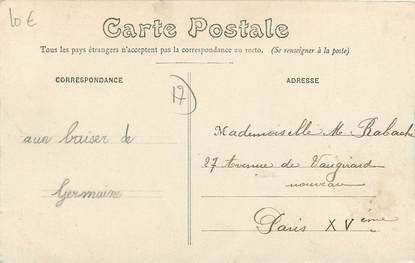 10 €
Carte Postale
Tous les pays étrangers n'acceptent pas la correspondance au recto. (Se renseigner à la poste)
CORRESPONDANCE
ADRESSE
17
aun baiser de
Germaine
Mademoiselle M. Rabache
27 Avenue de Vaugirard
nouveau
Paris XVème